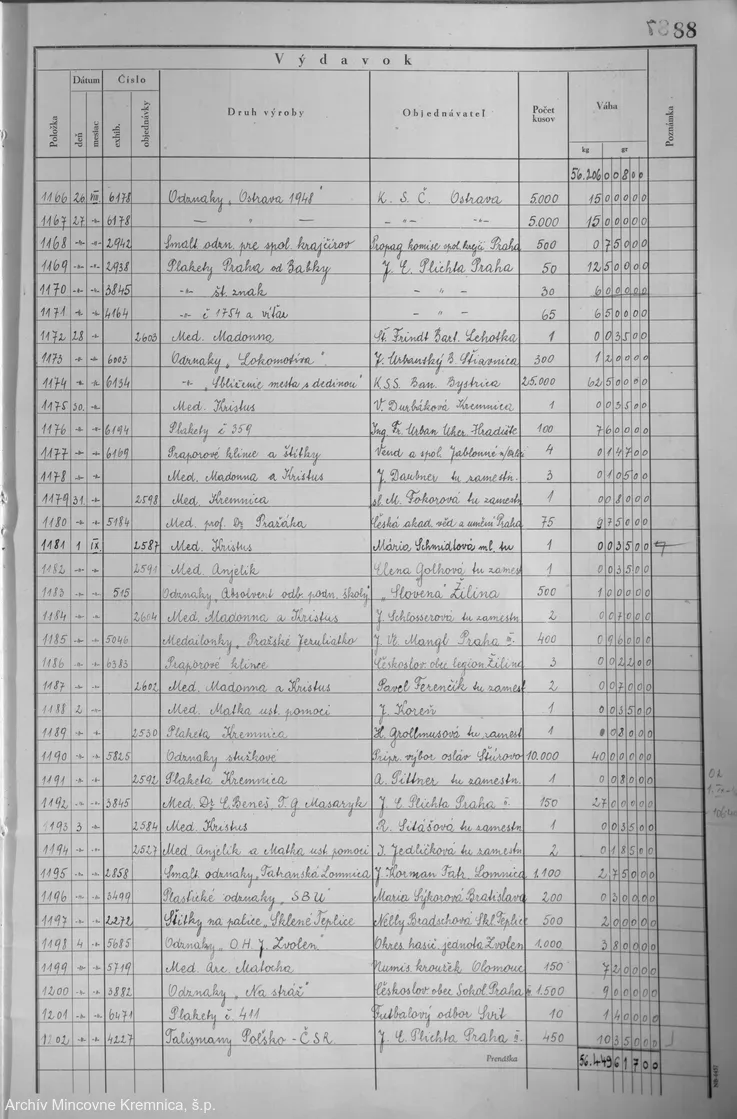 87 88
Výdavok
Položka Dátum Číslo Druh výroby Objednávateľ Počet kusov Váha Poznámka
deň mesiac exhib. objednávky kg gr
56.206 0 0 8 0 0
1166 26 VIII. 6178 Odznaky „Ostrava 1948" K. S. Č. Ostrava 5.000 15 0 0 0 0 0
1167 27 -"- 6178 — " — — " — -"- 5.000 15 0 0 0 0 0
1168 -"- -"- 2942 Smalt odzn. pre spol. krajčírov Propag komise spol. krejčí Praha 500 0 7 5 0 0 0
1169 -"- -"- 2938 Plakety Praha od Babky J. E. Plichta Praha 50 12 5 0 0 0 0
1170 -"- -"- 3845 -"- št. znak — " — 30 6 0 0 0 0 0
1171 -"- -"- 4164 -"- č 1754 a víťaz — " — 65 6 5 0 0 0 0
1172 28 -"- 2603 Med. Madonna Št. Frindt Bart. Lehotka 1 0 0 3 5 0 0
1173 -"- -"- 6003 Odznaky „Lokomotíva" J. Urbanský B. Štiavnica 300 1 2 0 0 0 0
1174 -"- -"- 6134 -"- „Sblíženie mesta s dedinou" KSS. Ban. Bystrica 25.000 62 5 0 0 0 0
1175 30. -"- Med. Kristus V. Durbáková Kremnica 1 0 0 3 5 0 0
1176 -"- -"- 6194 Plakety č 359 Ing. Fr. Urban Uher. Hradište 100 7 6 0 0 0 0
1177 -"- -"- 6169 Praporové klince a štítky Vend a spol. Jablonné 4 0 1 4 7 0 0
1178 -"- -"- Med. Madonna a Kristus J. Daubner tu zamestn. 3 0 1 0 5 0 0
1179 31 -"- 2598 Med. Kremnica sl. M. Fokorová tu zamestn 1 0 0 8 0 0 0
1180 -"- -"- 5184 Med. prof. Dr Pražáka Česká akad. věd a umění Praha 75 9 7 5 0 0 0
1181 1 IX. 2587 Med. Kristus Mária Schmidtová ml. tu 1 0 0 3 5 0 0
1182 -"- -"- 2591 Med. Anjelik Elena Golhová tu zamest 1 0 0 3 5 0 0
1183 -"- -"- 515 Odznaky „Absolvent odb. podn. školy" „Slovena" Žilina 500 1 0 0 0 0 0
1184 -"- -"- 2604 Med. Madonna a Kristus J. Schlosserová tu zamestn 2 0 0 7 0 0 0
1185 -"- -"- 5046 Medailonky „Pražské Jezuliatko J. Vl. Mangl Praha II. 400 0 9 6 0 0 0
1186 -"- -"- 6383 Praporové klince Českoslov. obec legion. Žilina 3 0 0 2 2 0 0
1187 -"- -"- 2602 Med. Madonna a Kristus Pavel Ferenčík tu zamest 2 0 0 7 0 0 0
1188 2 -"- Med. Matka ust. pomoci J. Koreň 1 0 0 3 5 0 0
1189 -"- -"- 2530 Plaketa Kremnica H. Grollmusová tu zamest 1 0 0 8 0 0 0
1190 -"- -"- 5825 Odznaky stužkové Prípr. výbor osláv Štúrovo 10.000 40 0 0 0 0 0
1191 -"- -"- 2592 Plaketa Kremnica A. Pittner tu zamestn. 1 0 0 8 0 0 0
1192 -"- -"- 3845 Med. Dr E. Beneš, T. G Masaryk J. E Plichta Praha II. 150 2 7 0 0 0 0
1193 3 -"- 2584 Med. Kristus R. Sitášová tu zamestn 1 0 0 3 5 0 0
1194 -"- -"- 2527 Med. Anjelik a Matka ust pomoci I. Jedličková tu zamestn 2 0 1 8 5 0 0
1195 -"- -"- 2858 Smalt. odznaky „Tatranská Lomnica J. Korman Tatr. Lomnica 1.100 2 7 5 0 0 0
1196 -"- -"- 3499 Plastické odznaky „SBU" Maria Sýkorová Bratislava 200 0 3 0 0 0 0
1197 -"- -"- 2272 Štítky na palice „Sklené Teplice Nelly Bradschová Skl Teplice 500 2 0 0 0 0 0
1198 4 -"- 5685 Odznaky „O.H. J. Zvolen" Okres. hasič. jednota Zvolen 1.000 3 8 0 0 0 0
1199 -"- -"- 5719 Med. Arc. Matocha Numis. kroužek Olomouc 150 7 2 0 0 0 0
1200 -"- -"- 3882 Odznaky „Na stráž" Českoslov. obec Sokol. Praha 1.500 9 0 0 0 0 0
1201 -"- -"- 6471 Plakety č. 411 Futbalový odbor Svit 10 1 4 0 0 0 0
1202 -"- -"- 4227 Talismany Poľsko - ČSR J. E Plichta Praha II. 450 10 3 5 0 0 0
Prenáška 56.449 6 1 7 0 0
Archív Mincovne Kremnica, š.p.